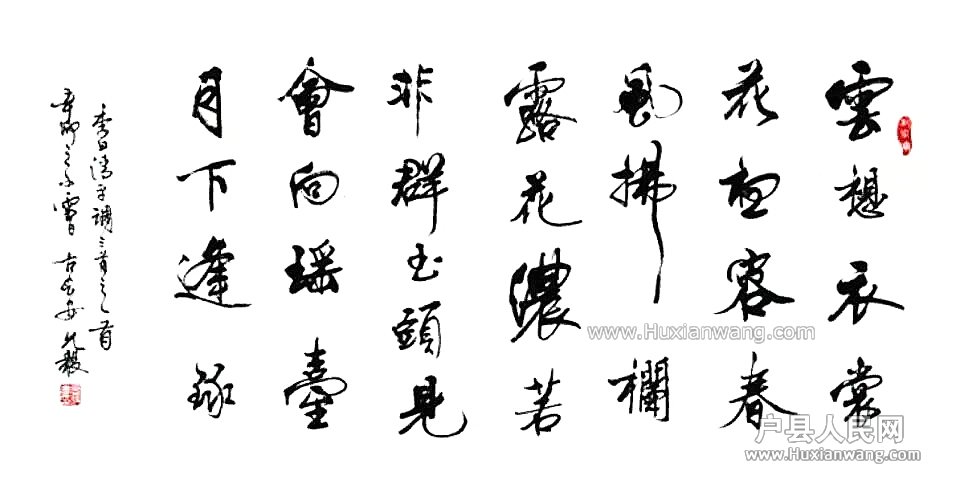 雲想衣裳
花想容春
風拂欄
露花濃若
非群玉頭見
會向瑤臺
月下逢
李白清平調三首之一首
辛卯之小雪 古長安 毅
www.Huxianwang.com
户县人民网
www.Huxianwang.com